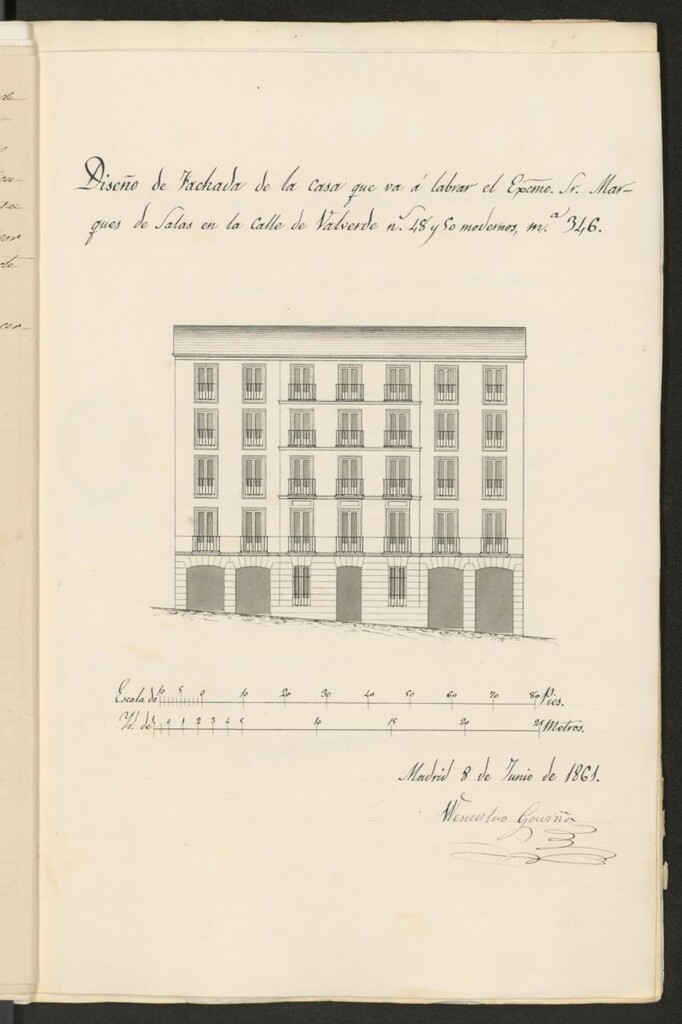 Diseño de Fachada de la casa que va á labrar el Excmo. Sr. Mar-
ques de Salas en la calle de Valverde n.s 48 y 50 modernos, m.a 346.
Escala de 10 5 0 10 20 30 40 50 60 70 80 Pies.
Yd. de 1 0 1 2 3 4 5 10 15 20 25 Metros.
Madrid 8 de Junio de 1861.
Wenceslao Gaviña